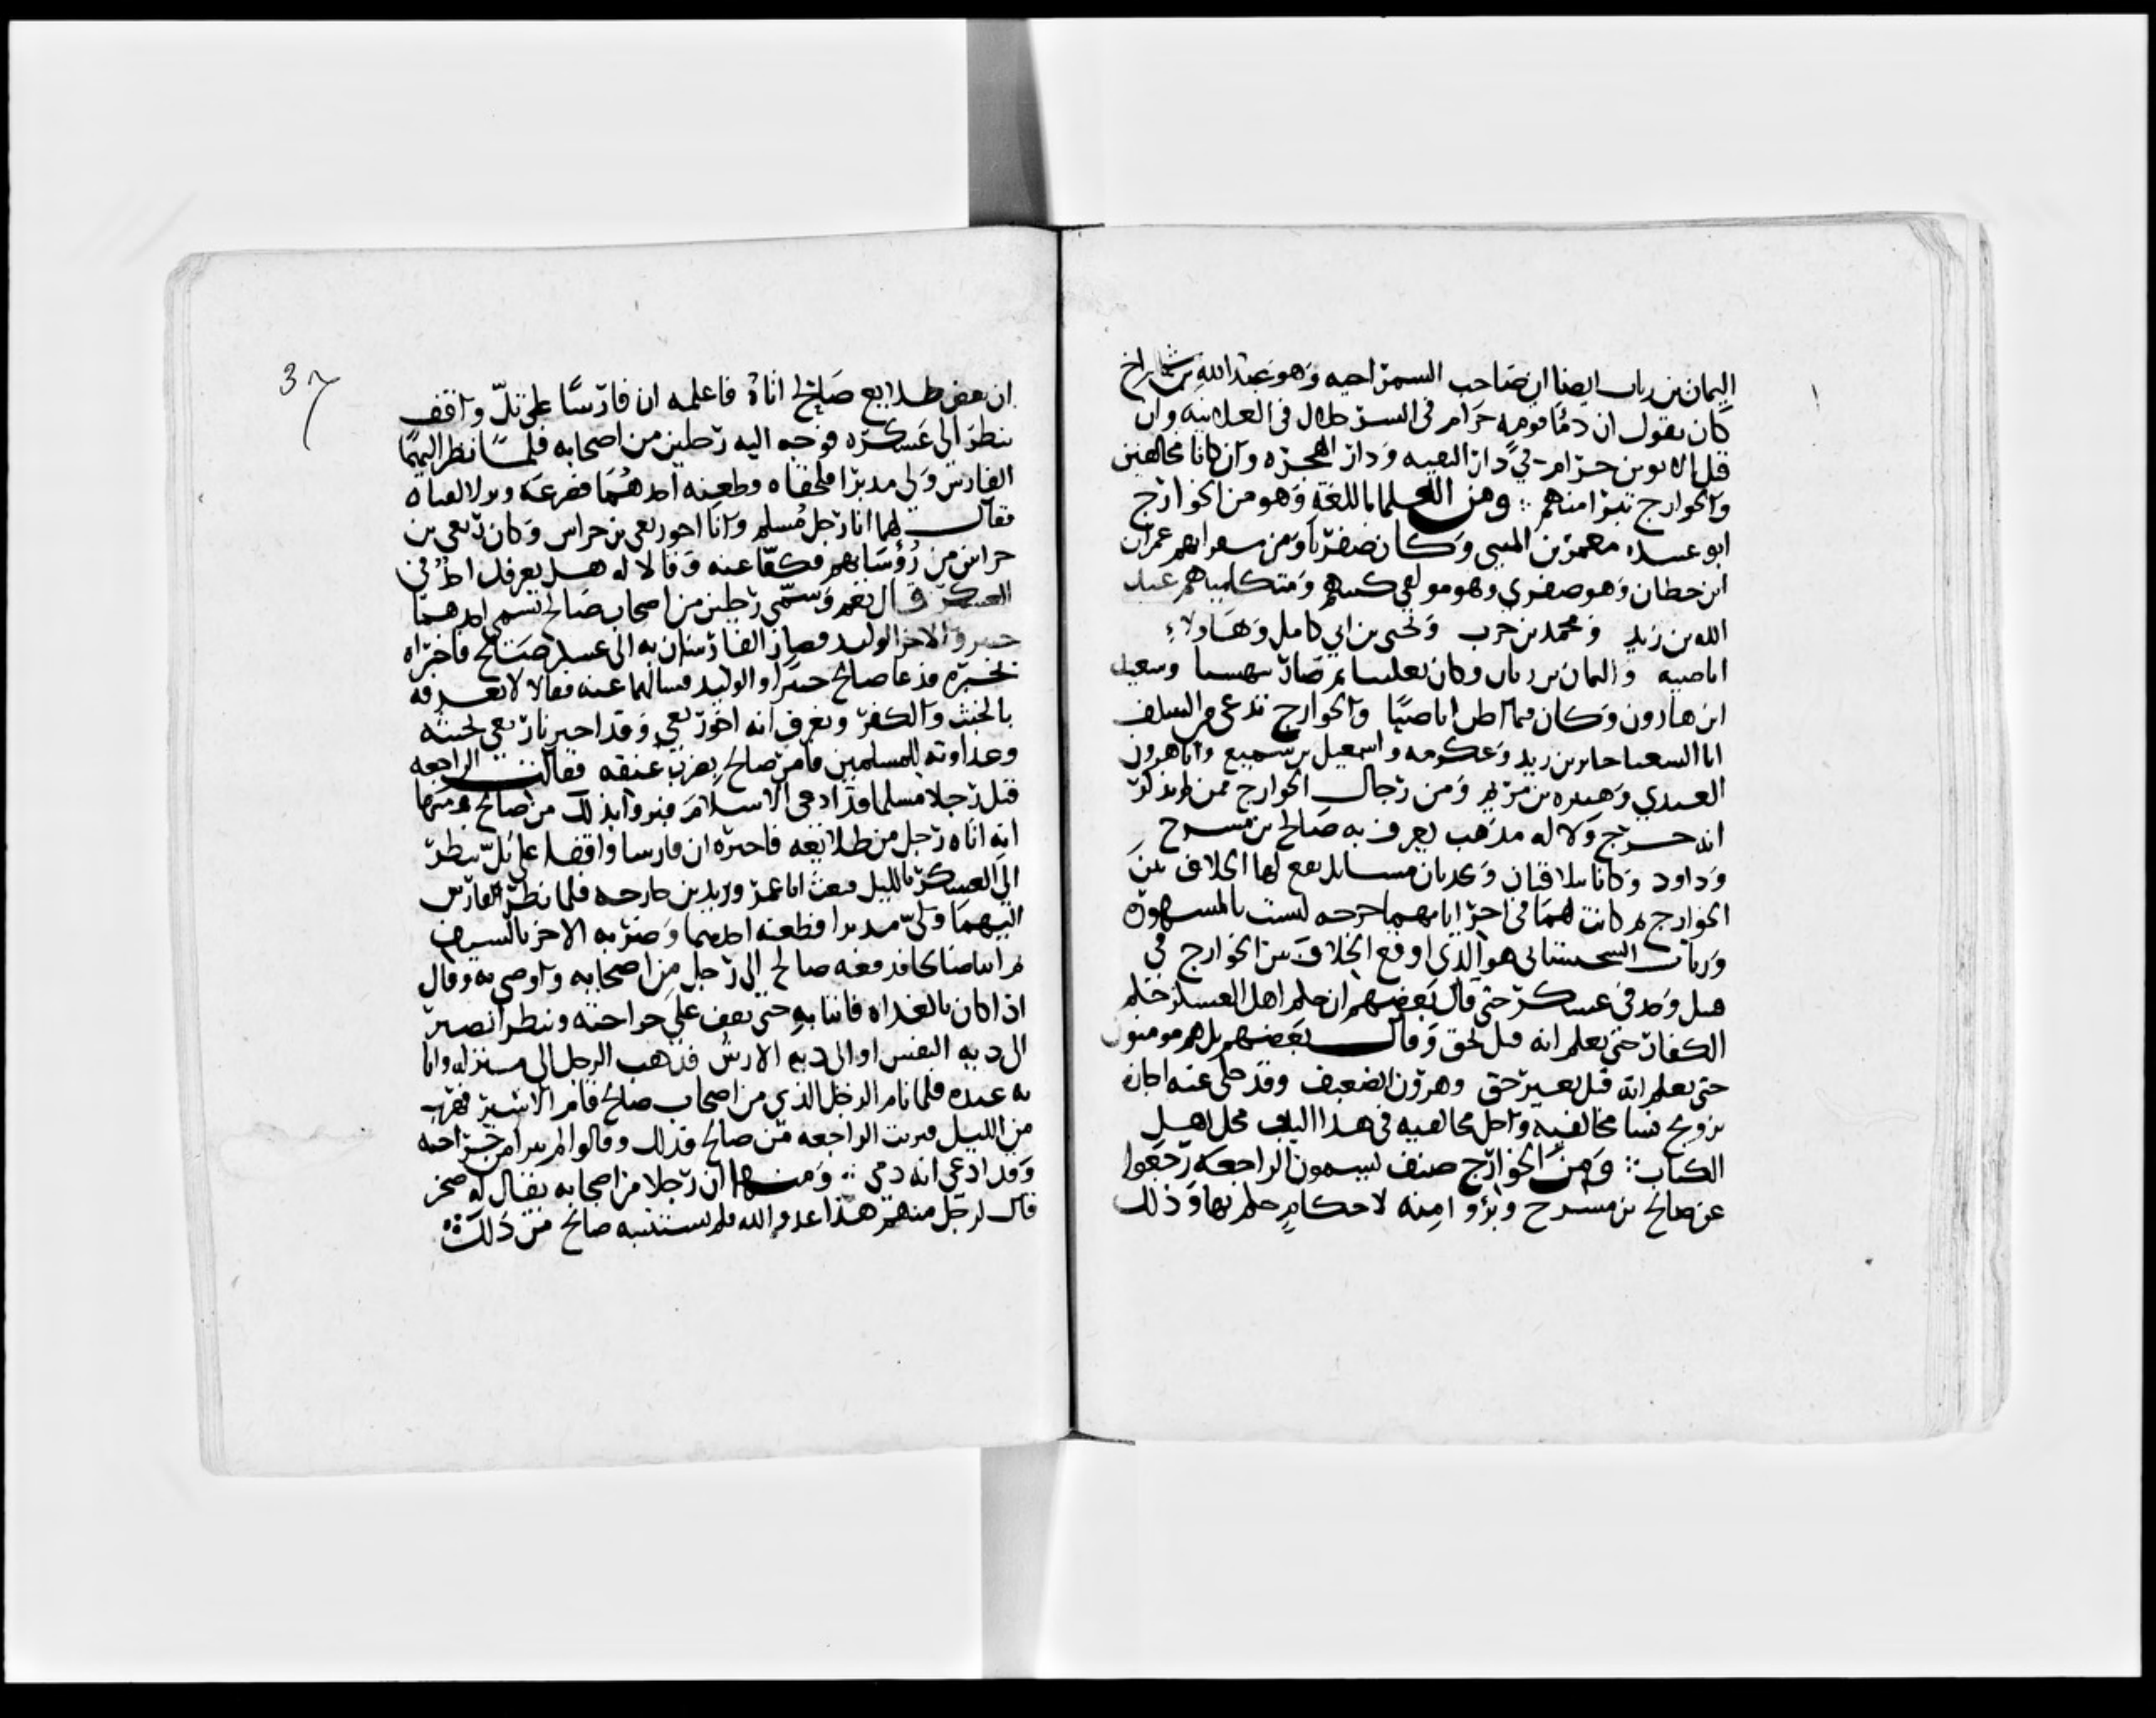 اليمان بن رباب ايضا ان صاحب السمراحيه وهو عبد الله بن شمراخ
كان يقول ان دما قومه حرام في السر حلال في العلانيه وان
قتل الابوين حرام في دار التقيه ودار الهجره وان كانا مخالفين
والخوارج تبرا منهم ومن العلما باللغة وهو من الخوارج
ابو عبيده معمر بن المثنى وكان صفريا ومن شعرايهم عمران
ابن حطان وهو صفري وهو مولفي كتبهم ومتكلميهم عبد
الله بن زيد ومحمد بن حرب ويحيى بن ابي كامل وهاولاء
اباضيه واليمان بن رباب وكان ثعلبيا ثم صار بيهسيا وسعيد
ابن هارون وكان فيما اظن اباضيا والخوارج تدعي من السلف
ابا الشعثا جابر بن زيد وعكرمه واسمعيل بن سميع وابا هرون
العبدي وهبيره بن مريم ومن رجال الخوارج ممن لم يذكر
انه خرج ولا له مذهب يعرف به صالح بن مسرح
وداود وكانا يتلاقيان ويحدثان مسايل يقع لها الخلاف بين
الخوارج ثم كانت لهما في اخر ايامهما خرجه ليست بالمشهوره
ورباب السجستاني هو الذي اوقع الخلاف بين الخوارج في
قتيل وجد في عسكر حتى قال بعضهم ان حكم اهل العسكر حكم
الكفار حتى يعلم انه قتل بحق وقال بعضهم بل هم مومنون
حتى يعلم انه قتل بغير حق وهرون الضعيف وقد حكي عنه اجازة
تزويج نسا مخالفيه واحل مخالفيه في هذا الباب محل اهل
الكتاب ومن الخوارج صنف يسمون الراجعه رجعوا
عن صالح بن مسرح وبرؤا منه لاحكام حكم بها وذلك
37
ان بعض طلايع صالح اتاه فاعلمه ان فارسا على تل واقف
ينظر الي عسكره فوجه اليه رجلين من اصحابه فلما نظر اليهما
الفارس ولى مدبرا فلحقاه وطعنه احدهما فصرعه ونزلا لقتاله
فقال لهما انا رجل مسلم وانا اخو ربعي بن حراش وكان ربعي بن
حراش من رؤسايهم فكفا عنه وقالا له هل يعرفك احد في
العسكر قال نعم وسمى رجلين من اصحاب صالح تسمى احدهما
جبير والاخر الوليد فصار الفارسان به الى عسكر صالح فاخبراه
بخبره فدعا صالح جبيرا والوليد فسالهما عنه فقالا لا نعرفه
بالخبث والكفر ونعرف انه اخو ربعي وقد اخبرنا ربعي بخبثه
وعداوته للمسلمين فامر صالح بضرب عنقه فقالت الراجعه
قتل رجلا مسلما قد ادعى الاسلام فبروا بذلك من صالح ومنها
انه اتاه رجل من طلايعه فاخبره ان فارسا واقفا على تل ينظر
الى العسكر بالليل فبعث ابا عمر ويزيد بن خارجه فلما نظر الفارس
اليهما ولى مدبرا فطعنه احدهما وضربه الاخر بالسيف
ثم اتيا صالحا فدفعه صالح الى رجل من اصحابه واوصى به وقال
اذا كان بالغداه فاتنا به حتى نقف على جراحته وننظر انصير
الى ديه النفس او الى ديه الارش فذهب الرجل الى منزله واتا
به عنده فلما نام الرجل الذي من اصحاب صالح قام الاسير فهرب
من الليل فبريت الراجعه من صالح في ذلك وقالوا لم يبرا من جراحته
وقد ادعي انه ذمي ومنها ان رجلا من اصحابه يقال له صخر
قال لرجل منهم هذا عدو الله فلم يستتبه صالح من ذلك